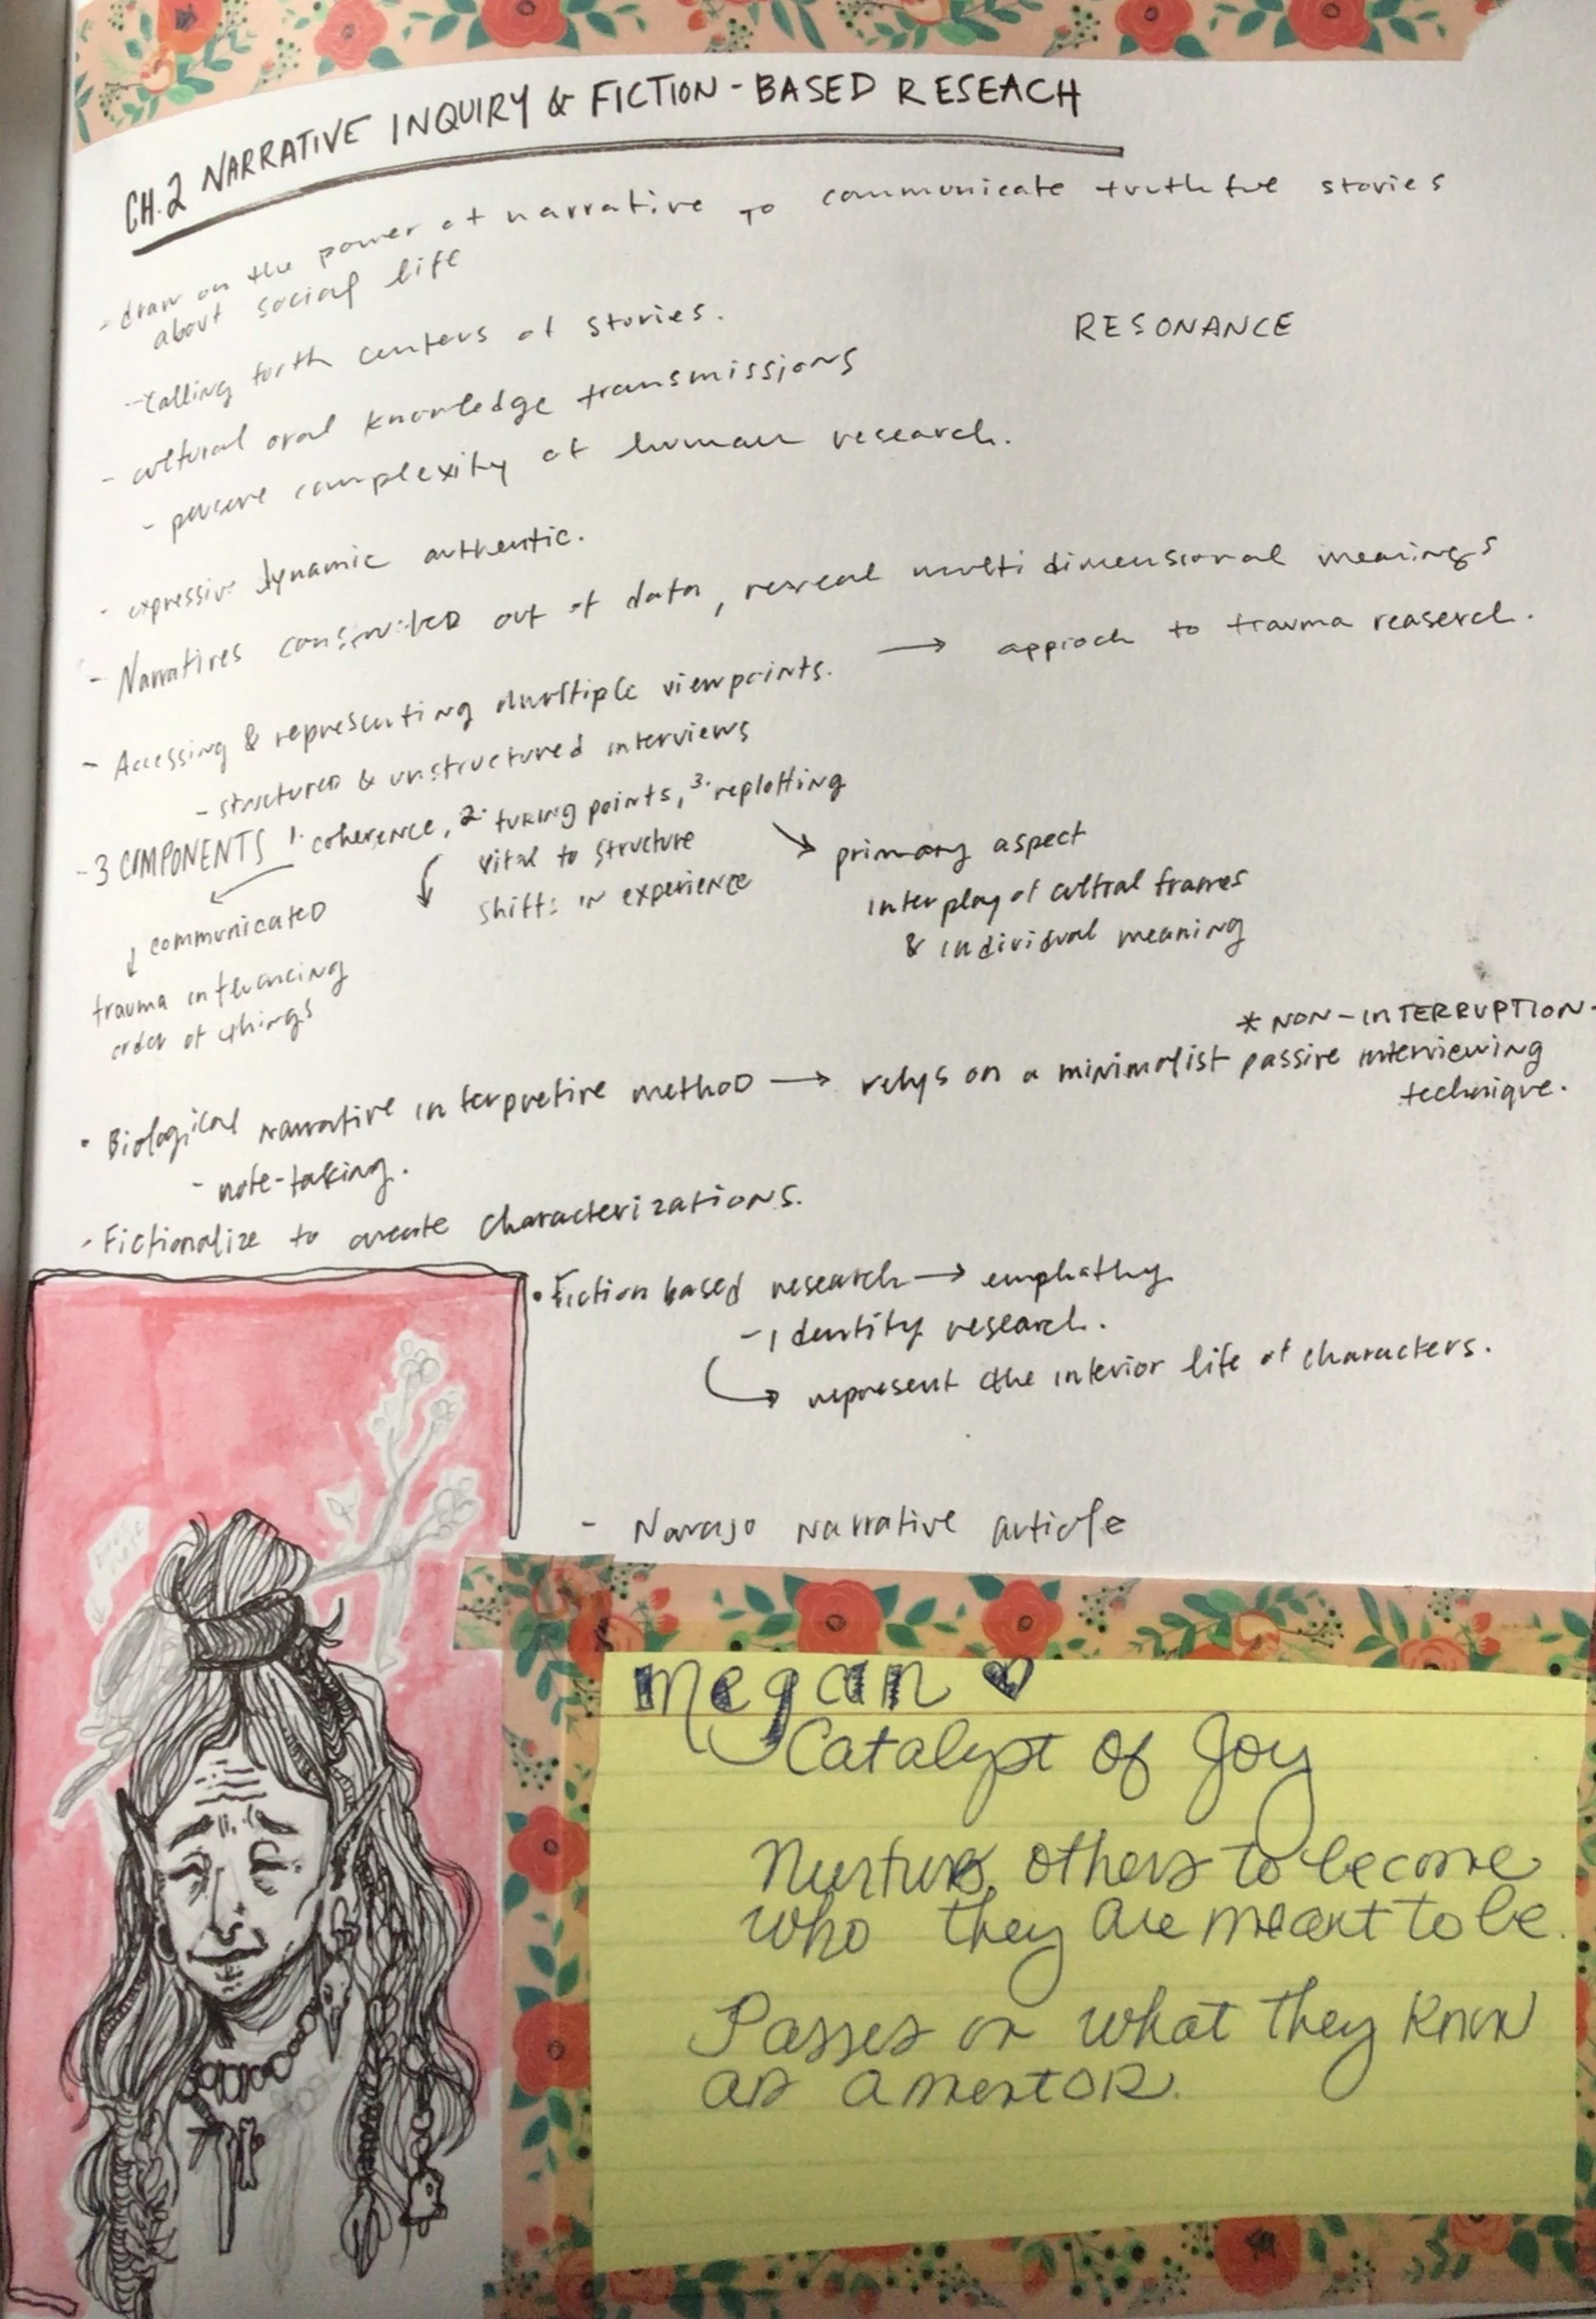 CH.2 NARRATIVE INQUIRY & FICTION-BASED RESEACH
- draw on the power of narrative to communicate truthful stories
about social life
- calling forth centers of stories.
RESONANCE
- cultural oral knowledge transmissions
- persure complexity of human research.
- expressive dynamic authentic.
- Narratives constructed out of data, reveal multidimensional meanings
- Accessing & representing multiple viewpoints. → approach to trauma reaserch.
- structured & unstructured interviews
- 3 COMPONENTS 1. coherence, 2. turing points, 3. replotting
vital to structure
shifts in experience
primary aspect
interplay of cultral frames
& individual meaning
communicated
trauma influencing
order of things
* NON-INTERRUPTION
• Biological narrative interpretive method → relys on a minimalist passive interviewing
technique.
- note-taking.
- Fictionalize to create characterizations.
• Fiction based research → emphathy
- identity research.
represent the interior life of characters.
- Navajo narrative article
Megan ♡
Catalyst of Joy
Nurtures others to become
who they are meant to be.
Passes on what they know
as a mentor.